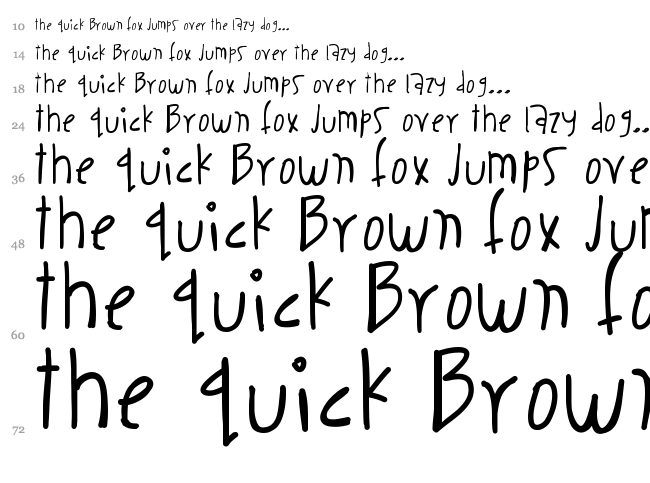 10 the quick Brown fox Jumps over the lazy dog...
14 the quick Brown fox Jumps over the lazy dog...
18 the quick Brown fox Jumps over the lazy dog...
24 the quick Brown fox Jumps over the lazy dog..
36 the quick Brown fox Jumps ove
48 the quick Brown fox Ju
60 the quick Brown fo
72 the quick Brown